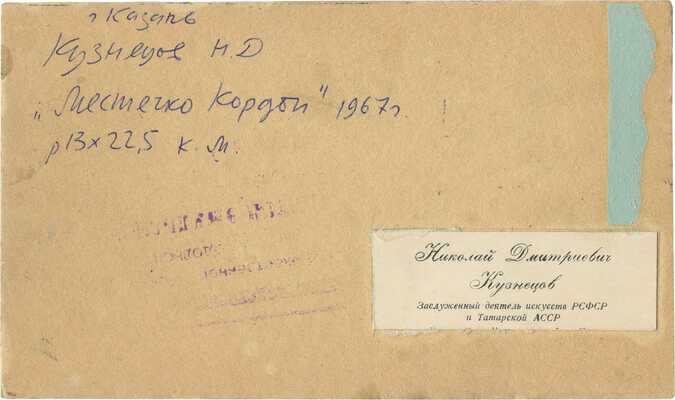 г Казань
Кузнецов Н.Д
„Местечко Кордон" 1967г.
р13х22,5 к. м.
Николай Дмитриевич
Кузнецов
Заслуженный деятель искусств РСФСР
и Татарской АССР